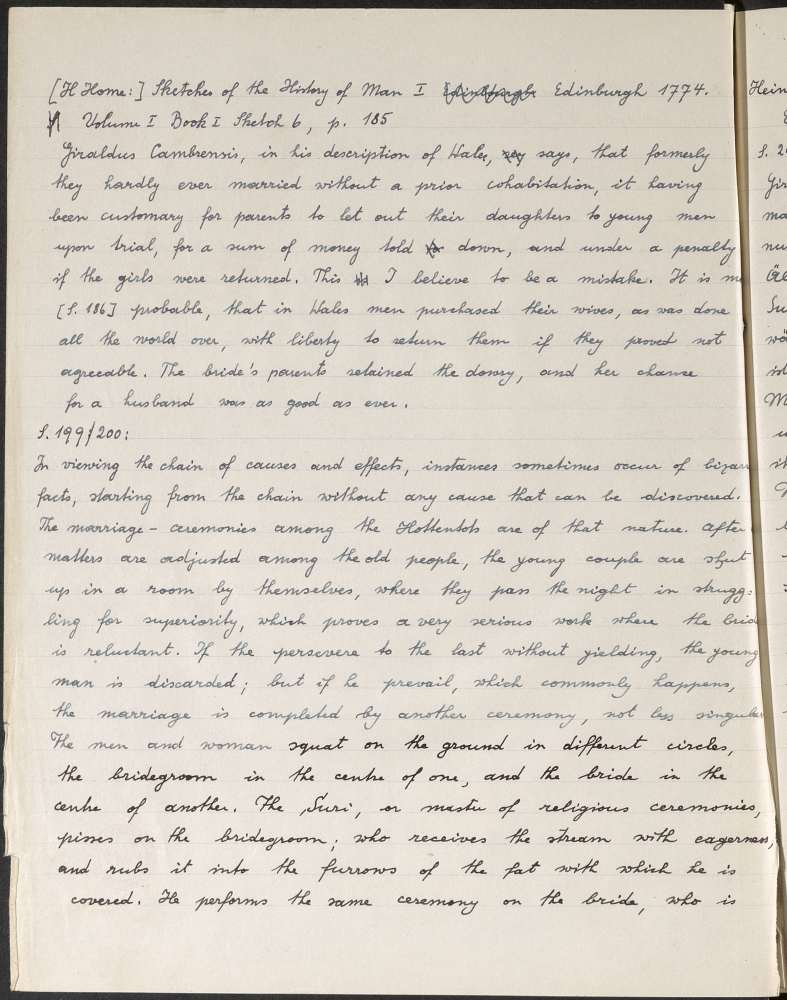 [H Home:] Sketches of the History of Man I Edinburgh Edinburgh 1774.
Volume I Book I Sketch 6, p. 185
Giraldus Cambrensis, in his description of Wales, says, that formerly
they hardly ever married without a prior cohabitation, it having
been customary for parents to let out their daughters to young men
upon trial, for a sum of money told down, and under a penalty
if the girls were returned. This I believe to be a mistake. It is
[S. 186] probable, that in Wales men purchased their wives, as was done
all the world over, with liberty to return them if they proved not
agreeable. The bride's parents retained the dowry, and her chance
for a husband was as good as ever.
S. 199/200:
In viewing the chain of causes and effects, instances sometimes occur of bizarr
facts, starting from the chain without any cause that can be discovered.
The marriage-ceremonies among the Hottentots are of that nature. After
matters are adjusted among the old people, the young couple are shut
up in a room by themselves, where they pass the night in strugg:
ling for superiority, which proves a very serious work where the brid
is reluctant. If the persevere to the last without yielding, the young
man is discarded; but if he prevail, which commonly happens,
the marriage is completed by another ceremony, not less singular
The men and woman squat on the ground in different circles,
the bridegroom in the centre of one, and the bride in the
centre of another. The Suri, or master of religious ceremonies,
pisses on the bridegroom; who receives the stream with eagerness,
and rubs it into the furrows of the fat with which he is
covered. He performs the same ceremony on the bride, who is
Hein
S. 2